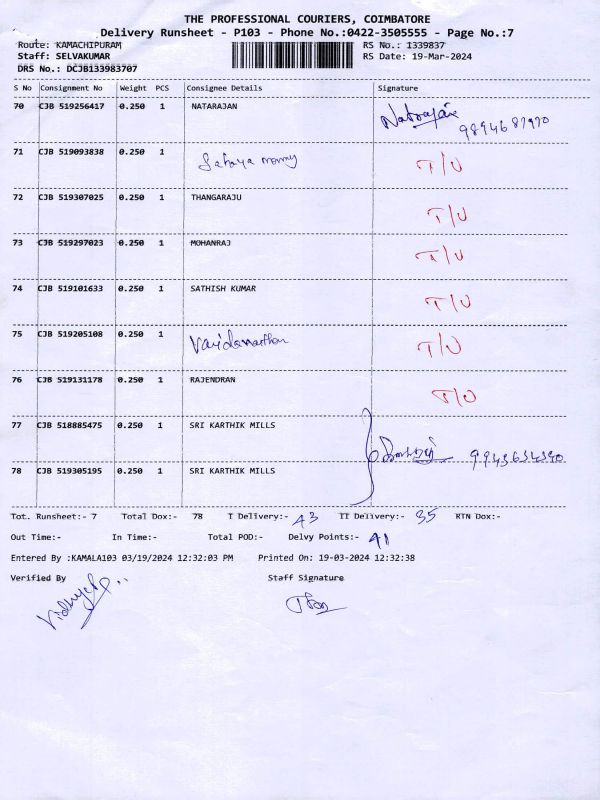 THE PROFESSIONAL COURIERS, COIMBATORE
Delivery Runsheet - P103 - Phone No.:0422-3505555 - Page No.:7
Route: KAMACHIPURAM RS No.: 1339837
Staff: SELVAKUMAR RS Date: 19-Mar-2024
DRS No.: DCJB133983707
S No Consignment No Weight PCS Consignee Details Signature
70 CJB 519256417 0.250 1 NATARAJAN Natrajan 9894687970
71 CJB 519093838 0.250 1 T/U
72 CJB 519307025 0.250 1 THANGARAJU T/U
73 CJB 519297023 0.250 1 MOHANRAJ T/U
74 CJB 519101633 0.250 1 SATHISH KUMAR T/U
75 CJB 519205108 0.250 1 Vaidanathan T/U
76 CJB 519131178 0.250 1 RAJENDRAN T/U
77 CJB 518885475 0.250 1 SRI KARTHIK MILLS
9943634390
78 CJB 519305195 0.250 1 SRI KARTHIK MILLS
Tot. Runsheet:- 7 Total Dox:- 78 T Delivery:- 43 II Delivery:- 35 RTN Dox:-
Out Time:- In Time:- Total POD:- Delvy Points:- 41
Entered By :KAMALA103 03/19/2024 12:32:03 PM Printed On: 19-03-2024 12:32:38
Verified By Staff Signature